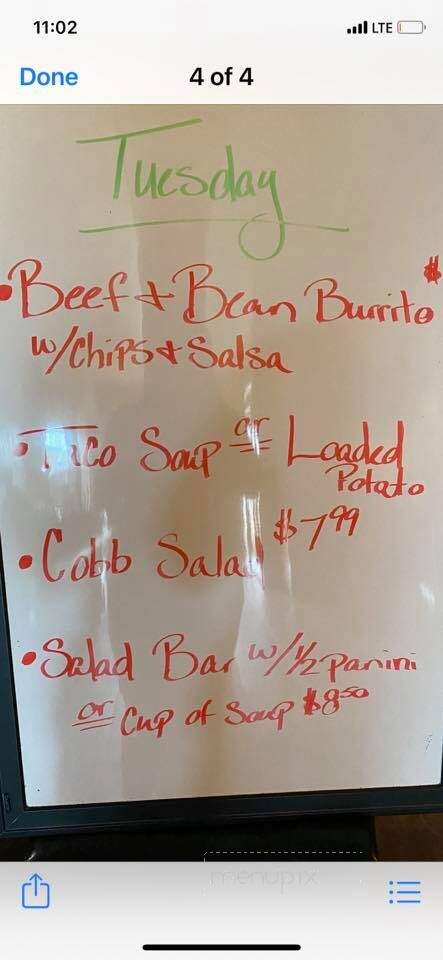 11:02
LTE
Done
4 of 4
Tuesday
• Beef & Bean Burrito $
w/chips & Salsa
• Taco Soup or Loaded
Potato
• Cobb Salad $7.99
• Salad Bar w/ 1/2 panini
or Cup of Soup $8.50
menupix